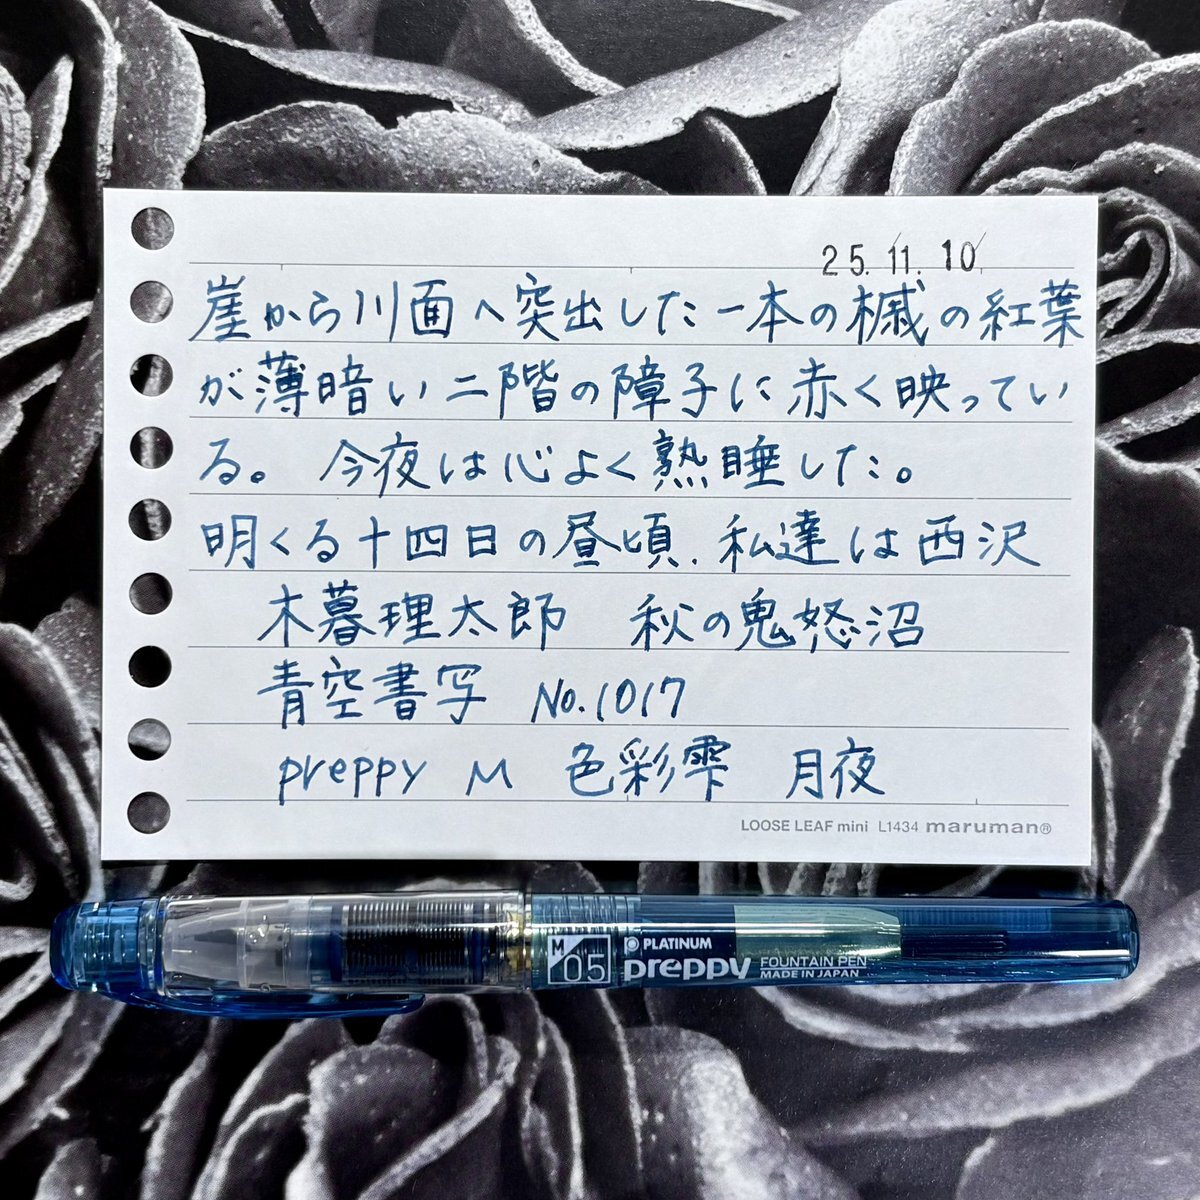 25.11.10
崖から川面へ突出した一本の槭の紅葉
が薄暗い二階の障子に赤く映ってい
る。今夜は心よく熟睡した。
明くる十四日の昼頃、私達は西沢
木暮理太郎 秋の鬼怒沼
青空書写 No.1017
preppy M 色彩雫 月夜
LOOSE LEAF mini L1434 maruman®
M 05 PLATINUM preppy FOUNTAIN PEN
MADE IN JAPAN